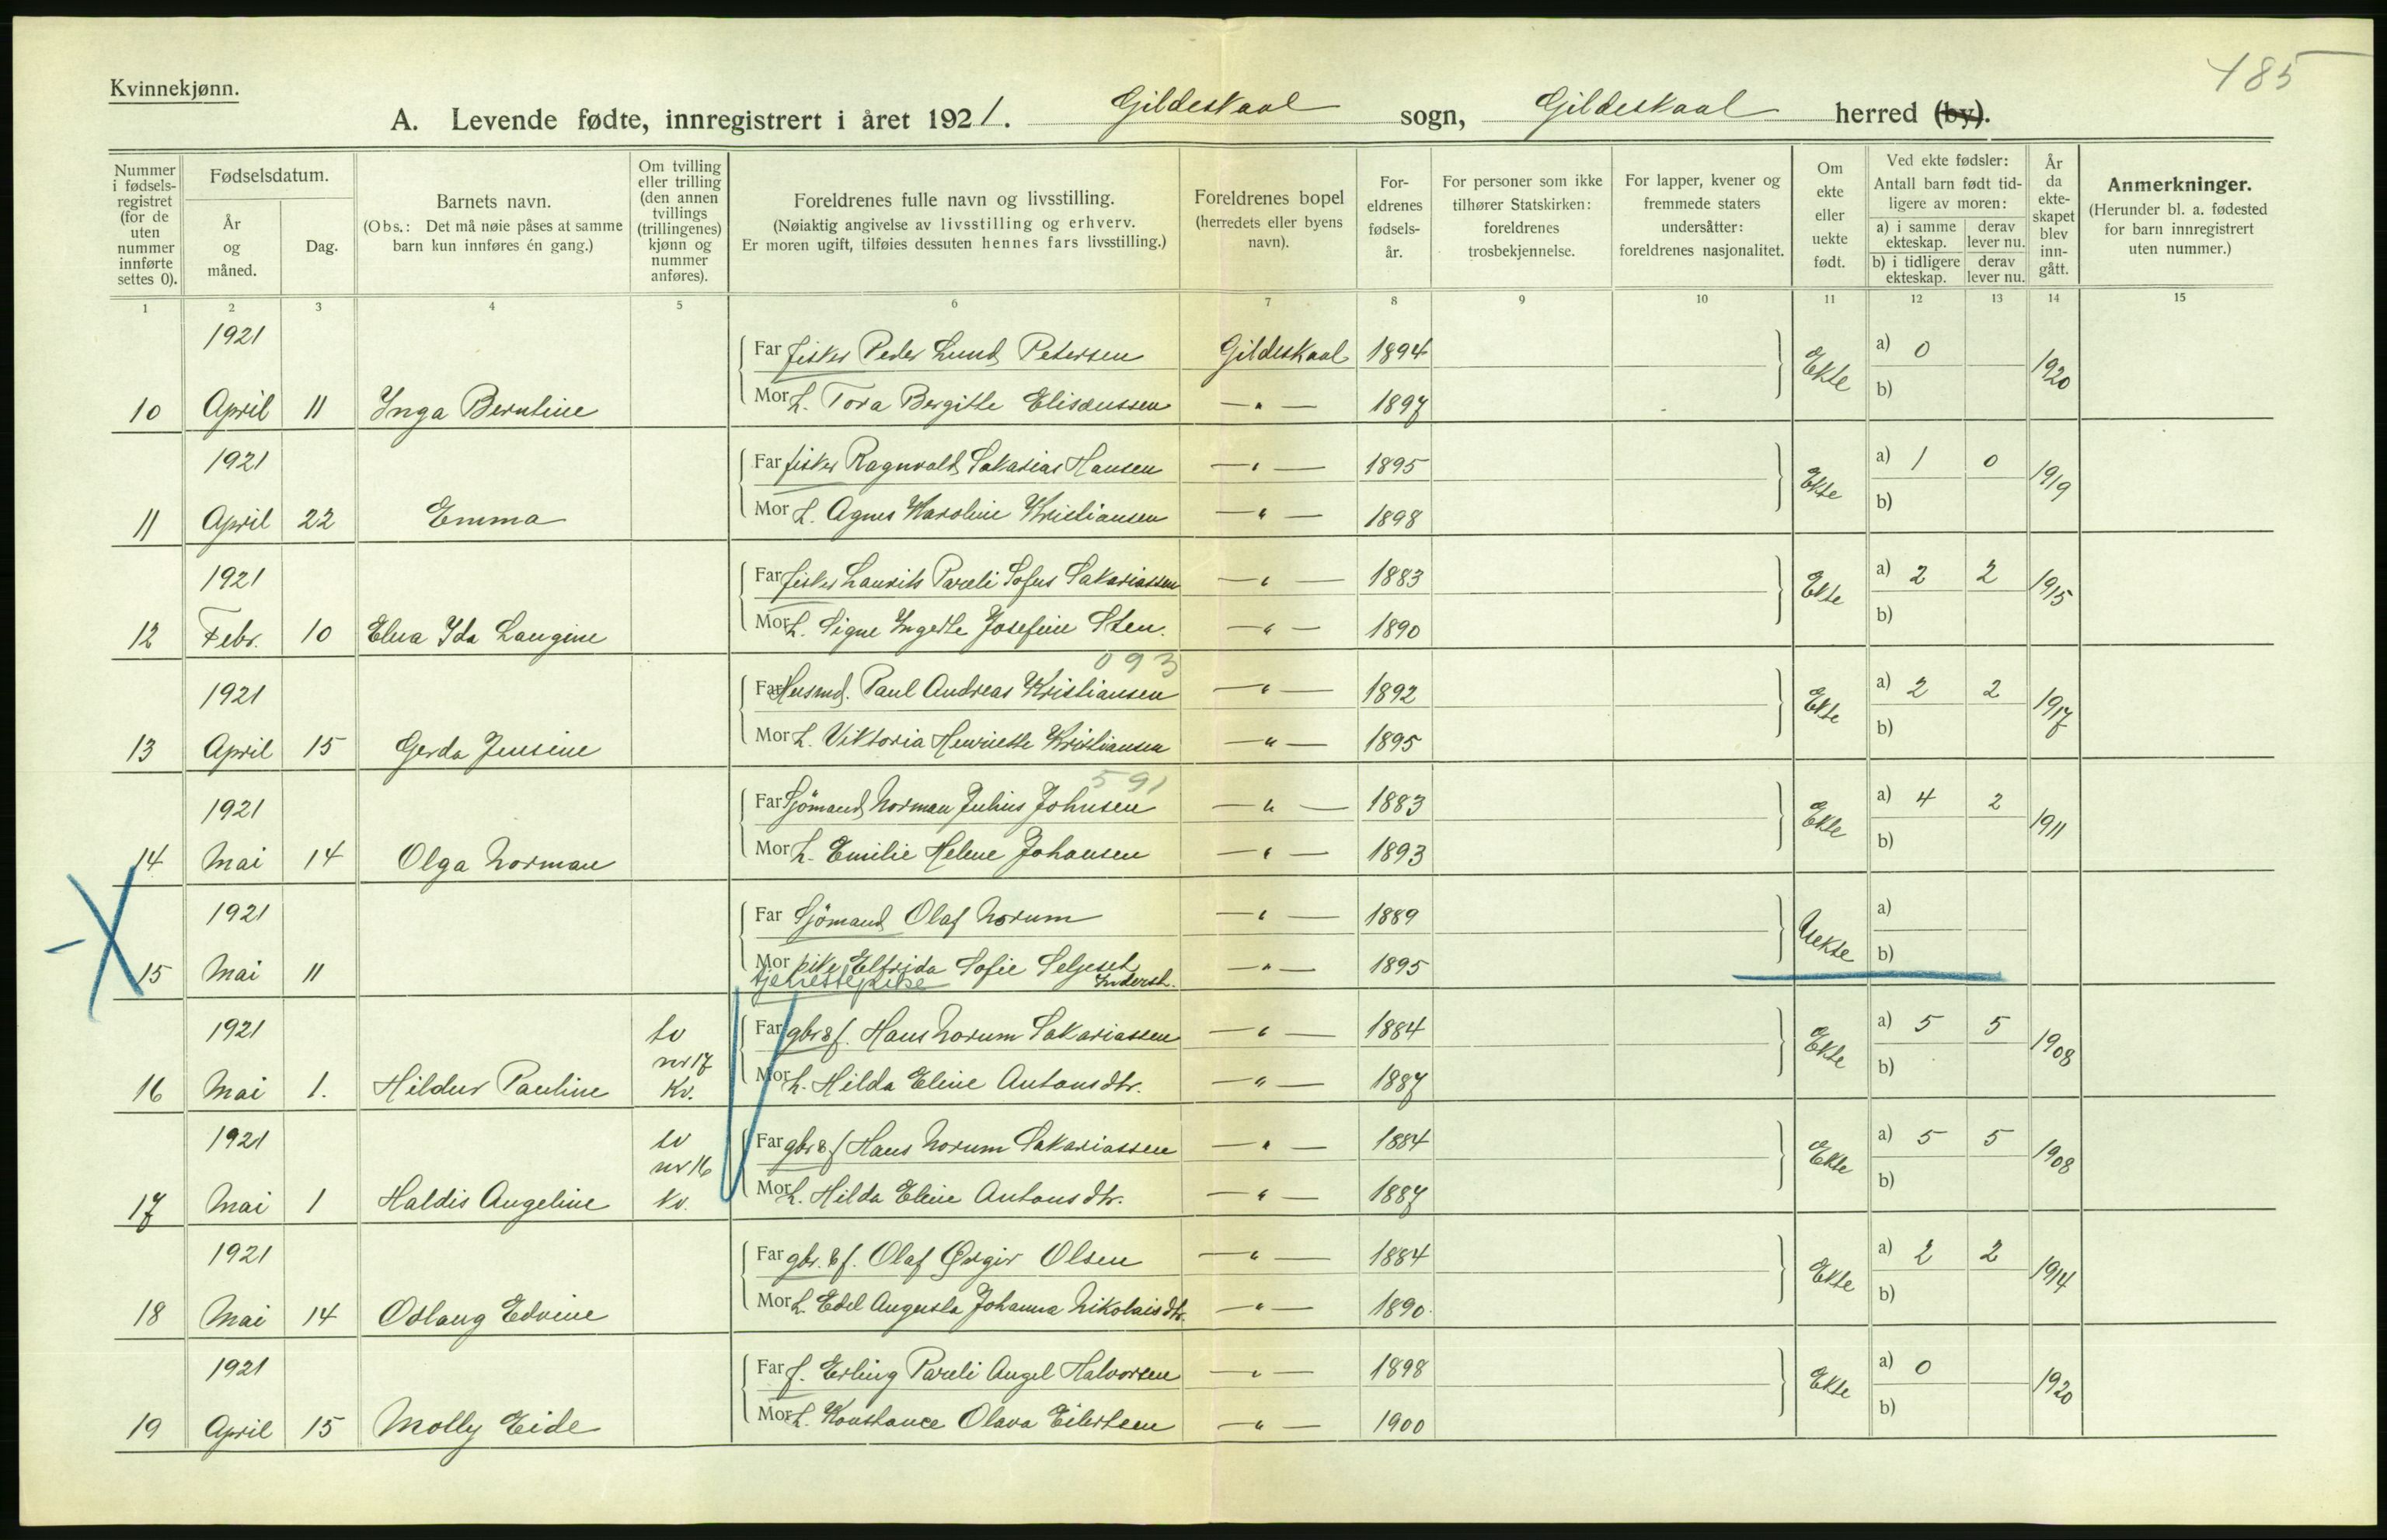 Kvinnekjønn.
485
A. Levende fødte, innregistrert i året 1921. Gildeskaal sogn, Gildeskaal herred (by).
Nummer i fødsels-registret (for de uten nummer innførte settes 0).
Fødselsdatum.
År og måned.
Dag.
Barnets navn.
(Obs.: Det må nøie påses at samme barn kun innføres én gang.)
Om tvilling eller trilling (den annen tvillings (trillingenes) kjønn og nummer anføres).
Foreldrenes fulle navn og livsstilling.
(Nøiaktig angivelse av livsstilling og erhverv.
Er moren ugift, tilføies dessuten hennes fars livsstilling.)
Foreldrenes bopel
(herredets eller byens navn).
For-eldrenes fødsels-år.
For personer som ikke tilhører Statskirken: foreldrenes trosbekjennelse.
For lapper, kvener og fremmede staters undersåtter: foreldrenes nasjonalitet.
Om ekte eller uekte født.
Ved ekte fødsler:
Antall barn født tid-ligere av moren:
a) i samme ekteskap.
derav lever nu.
b) i tidligere ekteskap.
derav lever nu.
År da ekte-skapet blev inn-gått.
Anmerkninger.
(Herunder bl. a. fødested for barn innregistrert uten nummer.)
1 2 3 4 5 6 7 8 9 10 11 12 13 14 15
1921 Far fisker Peder Lund Petersen Gildeskaal 1894 Ekte a) 0 1920
10 April 11 Inga Berntine Mor h. Tora Bergitte Elisæussen — " — 1897 b)
1921 Far fisker Ragnvald Sakarias Hansen — " — 1895 Ekte a) 1 0 1919
11 April 22 Emma Mor h. Agnes Karoline Kristiansen — " — 1898 b)
1921 Far fisker Laurits Pareli Sofus Sakariassen — " — 1883 Ekte a) 2 2 1915
12 Febr. 10 Elna Ida Laugine Mor h. Signe Ingerte Josefine Sten. — " — 1890 b)
093
1921 Far Husmd. Paul Andreas Kristiansen — " — 1892 Ekte a) 2 2 1917
13 April 15 Gerda Jensine Mor h. Viktoria Henriette Kristiansen — " — 1895 b)
591
1921 Far Sjömand Norman Julius Johnsen — " — 1883 Ekte a) 4 2 1911
14 Mai 14 Olga Norman Mor h. Emilie Helene Johansen — " — 1893 b)
1921 Far Sjömand Olaf Norum — " — 1889 Uekte a)
15 Mai 11 Mor pike Elfrida Sofie Seljeset — " — 1895 b)
tjenestepike Inderst.
1921 tv Far gbr & f. Hans Norum Sakariassen — " — 1884 Ekte a) 5 5 1908
nr 17
16 Mai 1. Hildur Pauline Kv. Mor h. Hilda Eline Antonsdtr. — " — 1887 b)
1921 tv Far gbr & f Hans Norum Sakariassen — " — 1884 Ekte a) 5 5 1908
nr 16
17 Mai 1 Haldis Angeline kv. Mor h. Hilda Eline Antonsdtr. — " — 1887 b)
1921 Far gbr. & f. Olaf Ørgir Olsen — " — 1884 Ekte a) 2 2 1914
18 Mai 14 Oslaug Edvine Mor h. Edel Augusta Johanna Nikolaisdtr. — " — 1890. b)
1921 Far f. Erling Pareli Angel Halvorsen — " — 1898 Ekte a) 0 1920
19 April 15 Molly Eide Mor h. Konstance Olava Eilertsen — " — 1900 b)